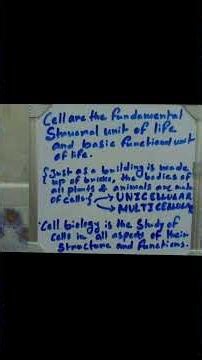 Cell are the fundamental
Strucral unit of life
and basic functional unit
of life.
{Just as a building is made
up of bricks, the bodies of
all plants & animals are made
of cells} → UNICELLULAR
→ MULTICELLULAR
• Cell biology is the study of
cells in all aspects of their
structure and functions.